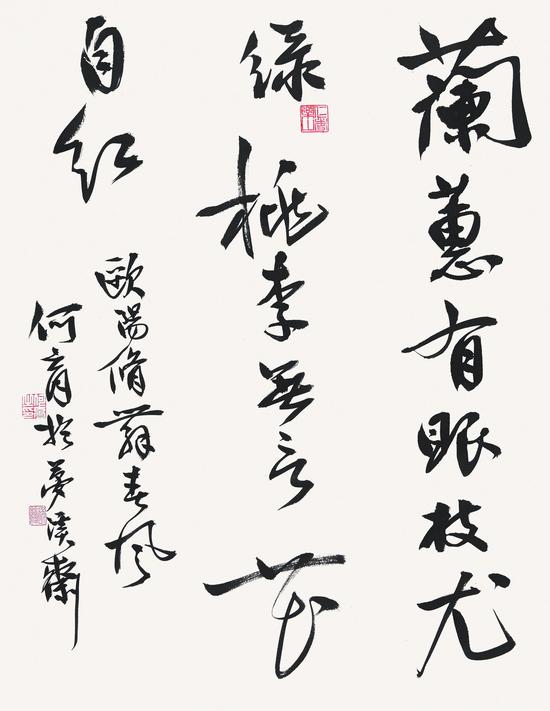 蘭蕙有眼枝尤
綠桃李無言花
自紅
歐陽脩舞春風
何育於夢溪齋